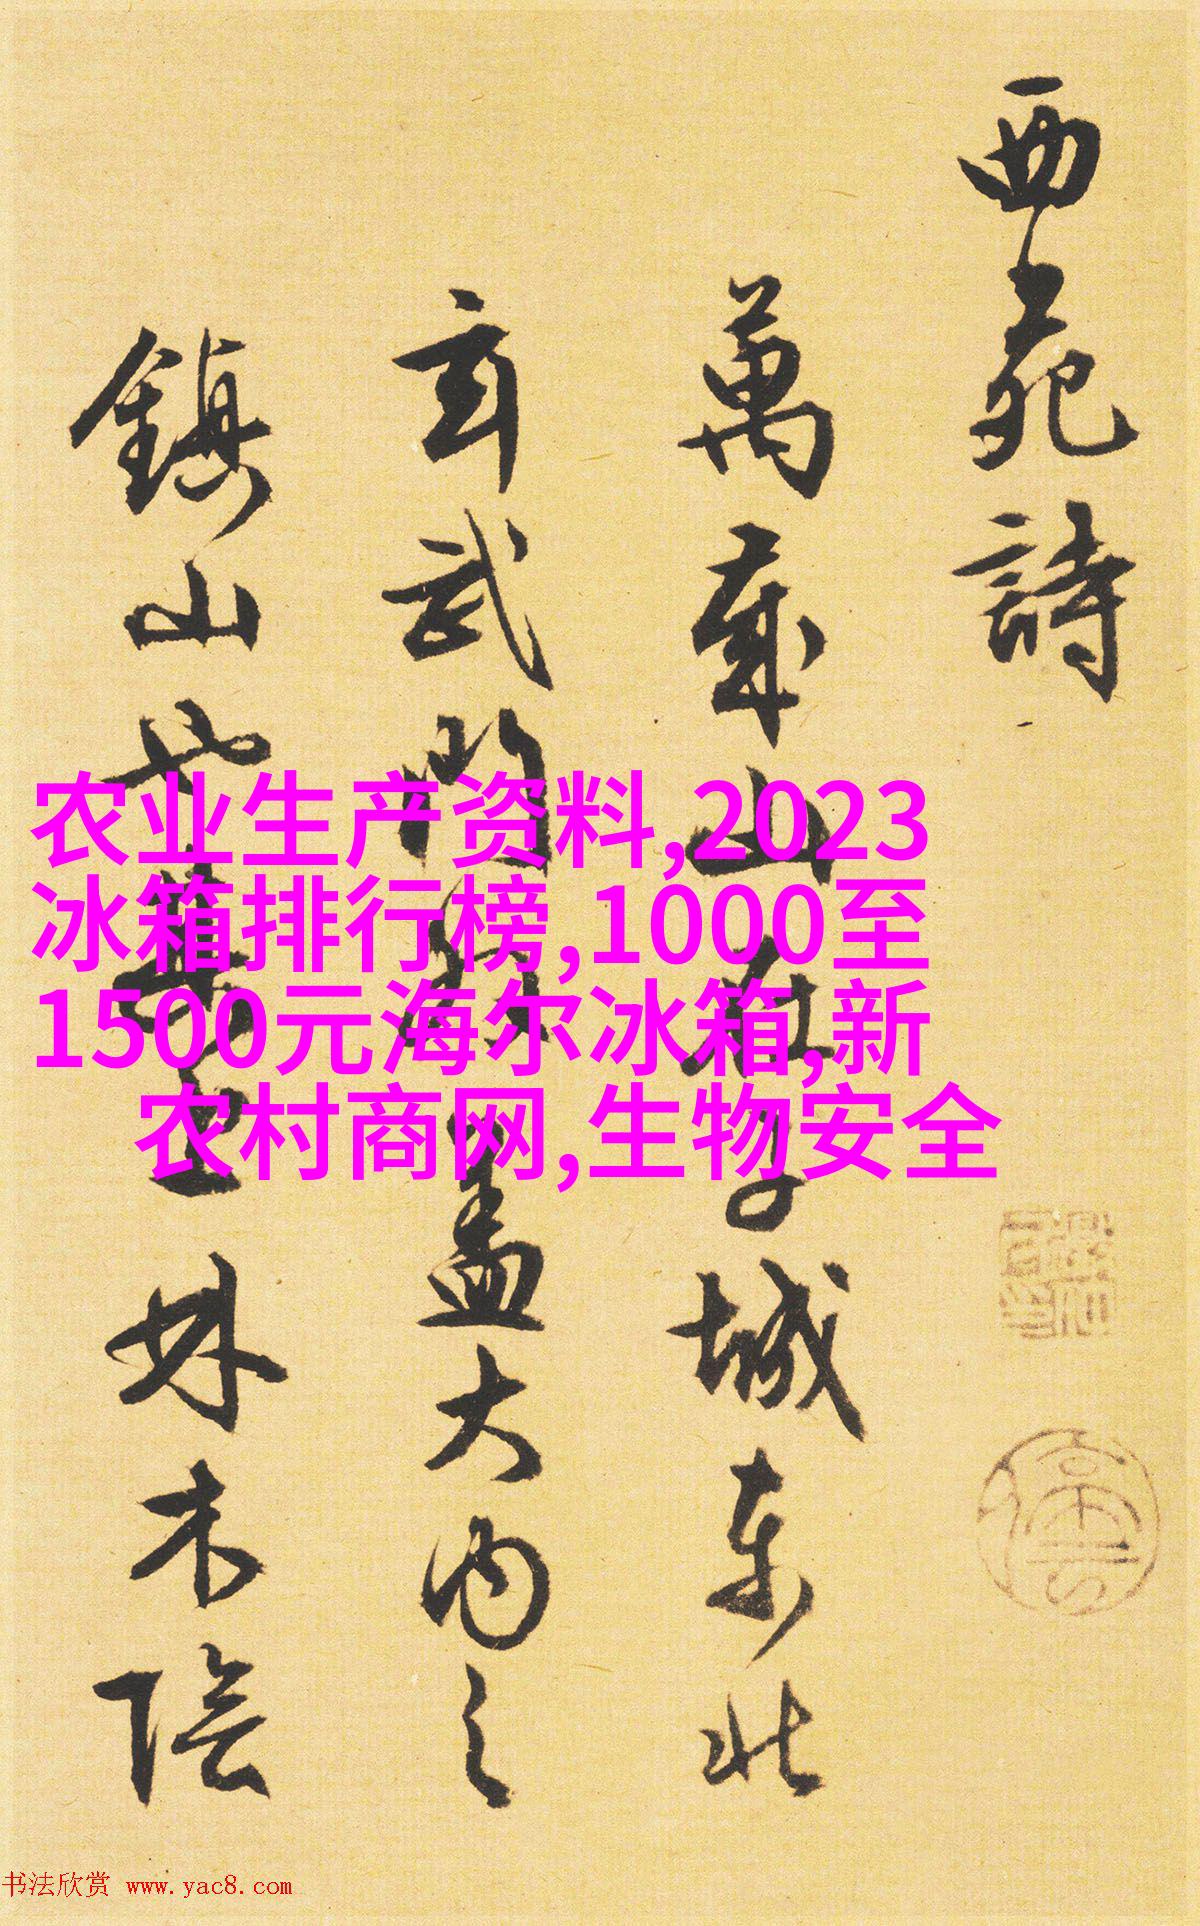 西苑詩
萬歲山在子城東北
玄武門外蓋大內之
鎮山也
林木陰
农业生产资料,2023
冰箱排行榜,1000至
1500元海尔冰箱,新
农村商网,生物安全
书法欣赏 www.yac8.com